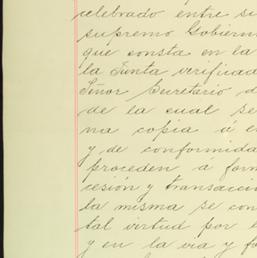 celebrado entre su
supremo Gobiern
que consta en la
la Junta verificad
Señor Secretario d
de la cual se
na copia á e
y de conformida
proceden á for
cesión y transacció
la misma se con
tal virtud por e
y en la via y fo